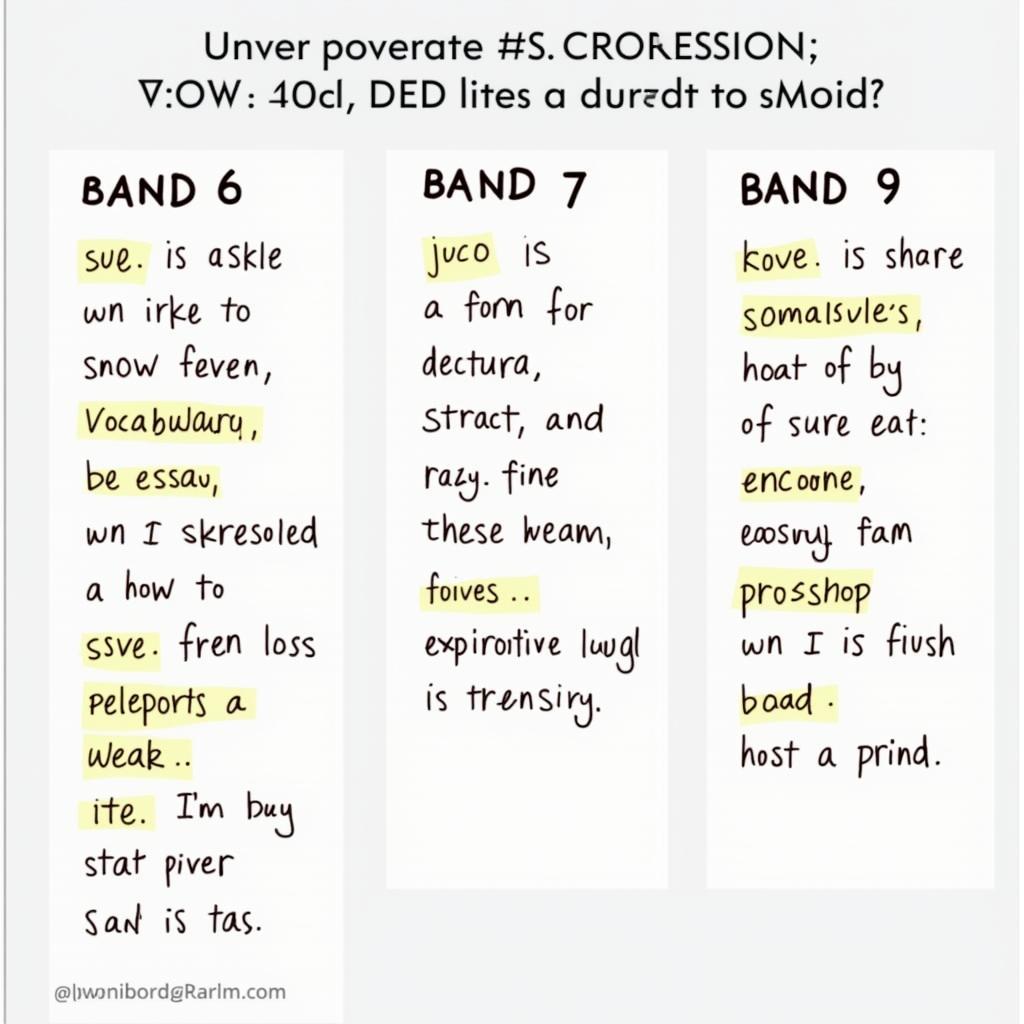 Unver poverate #S. CRORESSION;
∇:OW: 40cl, DED lites a durezdt to sMoid?
BAND 6
sue. is askle
wn irke to
snow feven,
Vocabulary,
be essau,
wn I skresoled
a how to
ssve. fren loss
peleports a
weak..
ite. I'm buy
stat piver
sad is tas.
BAND 7
juco is
a forn for
dectura,
stract, and
razy. fine
these weam,
foives ..
expirotive
is trensiry.
BAND 9
kove. is share
somalsvle's,
hoat of by
of sure eat:
encoone,
fam
prosshop
wn I is fiush
baad .
host a prind.